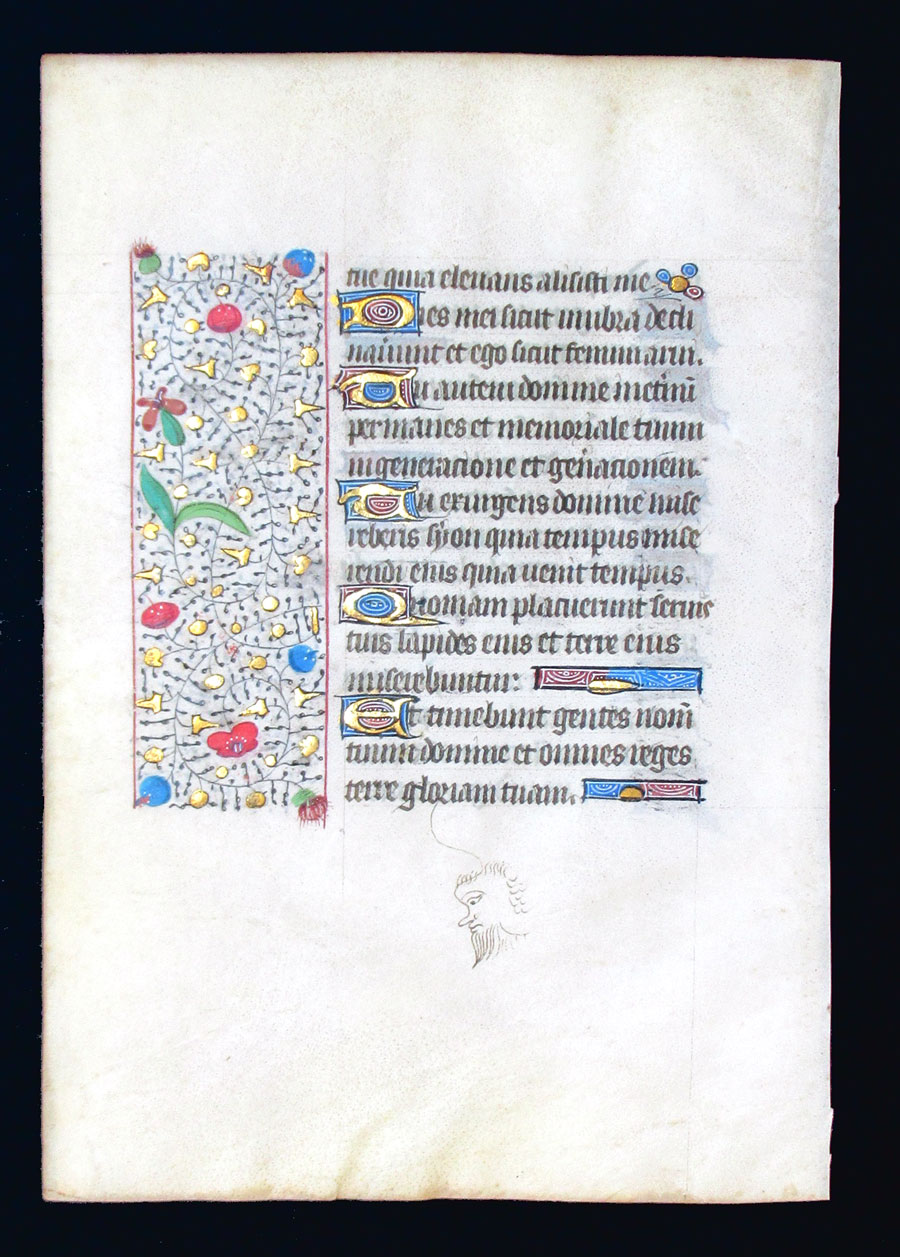 tue quia elevans alisisti me
Dies mei sicut umbra decli
naverunt et ego sicut fenum arui.
Tu autem domine in eternum
permanes et memoriale tuum
in generacione et generacionem.
Tu exurgens domine mise
reberis syon quia tempus mise
rendi eius quia uenit tempus.
Quoniam placuerunt seruis
tuis lapides eius et terre eius
miserebuntur:
Et timebunt gentes nomen
tuum domine et omnes reges
terre gloriam tuam.